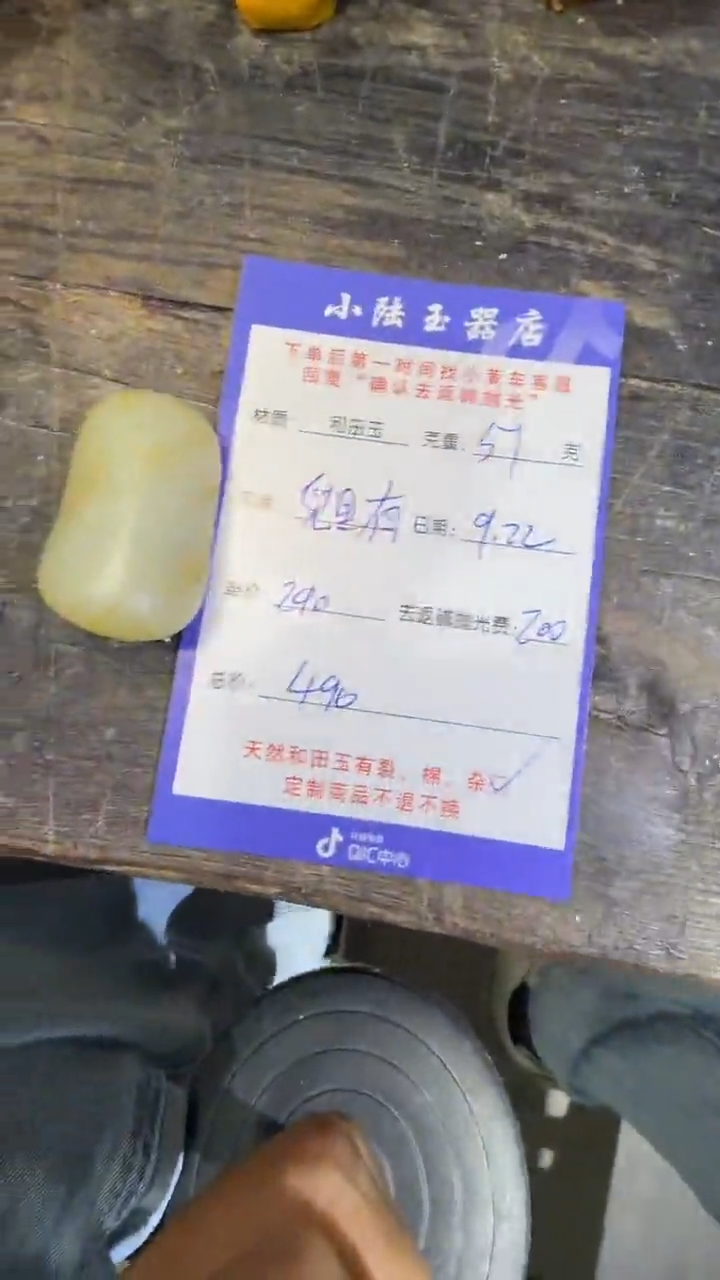 小陆玉器店
下单后第一时间找小黄车客服
回复“确认去返磷抛光”
材质: 和田玉 克重: 57 克
日期: 9.22
290 去返磷抛光费: 200
总价: 490
天然和田玉有裂、棉、杂✓
定制商品不退不换